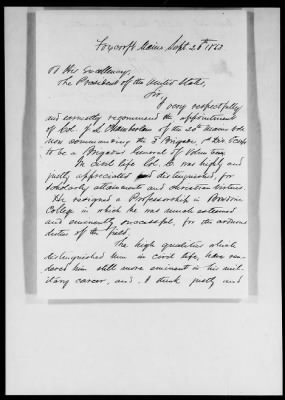 Foxcroft Maine, Sept. 26th 1863
To His Excellency,
The President of the United States,
Sir
I very respectfully
and earnestly recommend the appointment
of Col. J. L. Chamberlain of the 20th Maine Vols
now commanding the 3 Brigade, 1st Div. 5 Corps
to be a Brigadier General of Volunteers
In civil life Col. C. was highly and
justly appreciated and distinguished, for
scholarly attainments and christian virtues.
He resigned a Professorship in Bowdoin
College in which he was much esteemed
and eminently successful, for the arduous
duties of the field.
The high qualities which
distinguished him in civil life, have ren-
dered him still more eminent in his mil-
itary career, and I think justly and